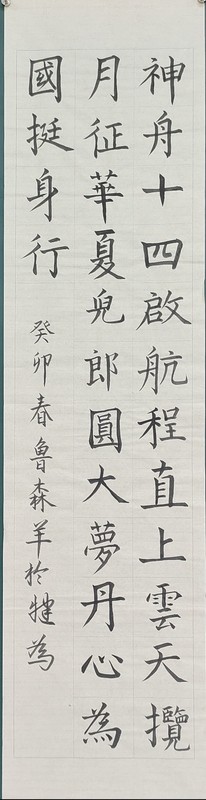 神舟十四啟航程直上雲天攬
月征華夏兒郎圓大夢丹心為
國挺身行
癸卯春魯森羊於犍為